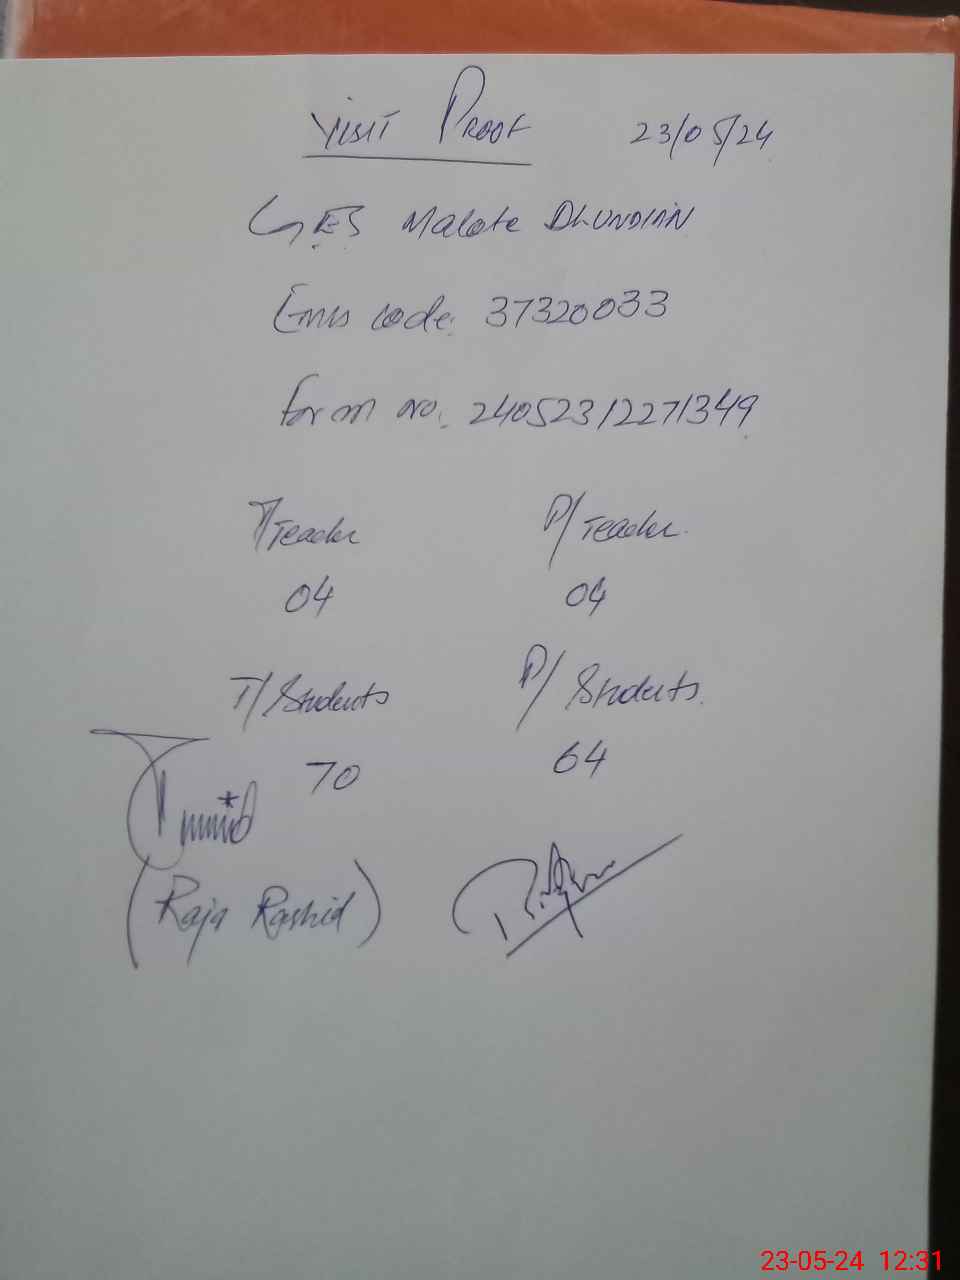 Visit Proof 23/05/24
GES Malote Dhundian
Emis code: 37320033
Form no. 24052312271349
T/Teacher P/Teacher.
04 04
T/Students P/Students.
70 64
(Raja Rashid)
23-05-24 12:31